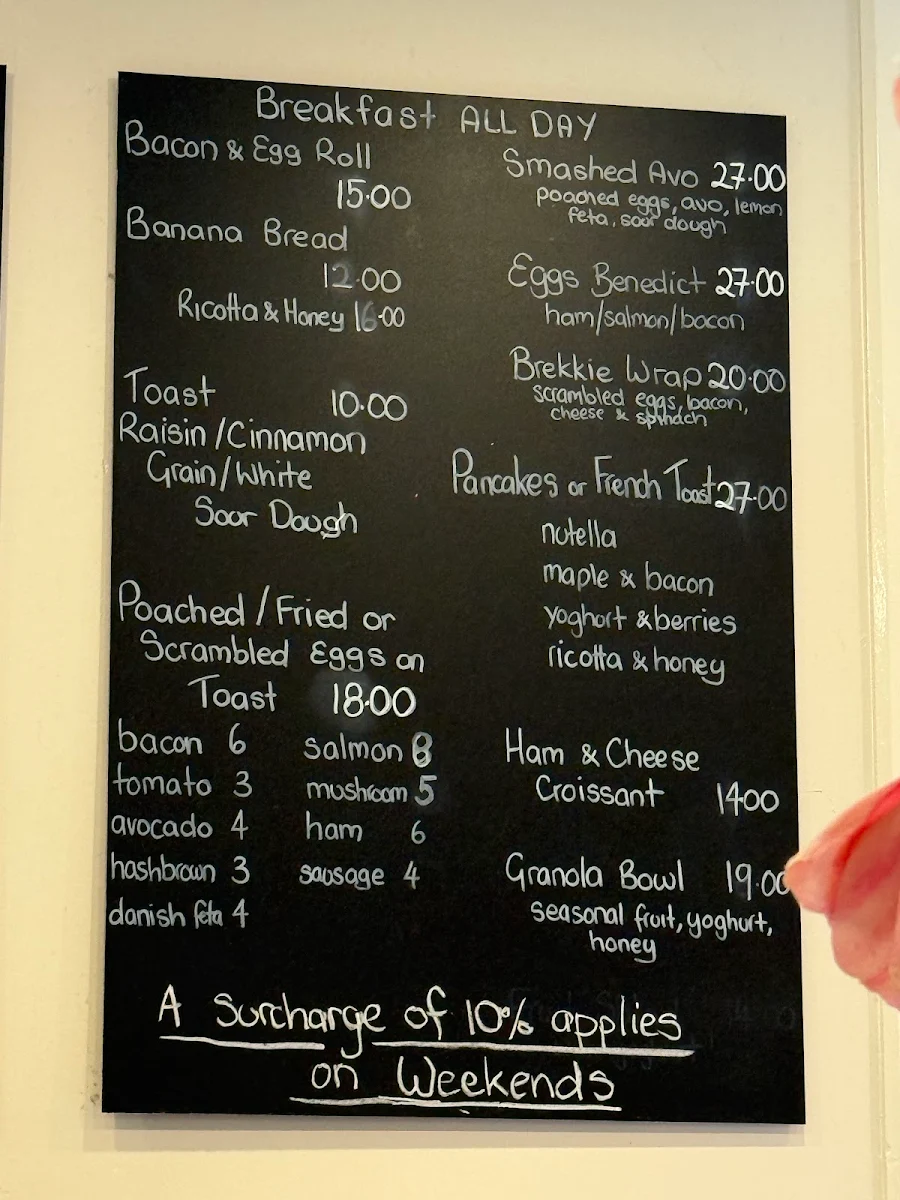 Breakfast ALL DAY
Bacon & Egg Roll
15.00
Banana Bread
12.00
Ricotta & Honey 16.00
Toast 10.00
Raisin / Cinnamon
Grain / White
Sour Dough
Poached / Fried or
Scrambled Eggs on
Toast 18.00
bacon 6 salmon 8
tomato 3 mushroom 5
avocado 4 ham 6
hashbrown 3 sausage 4
danish feta 4
Smashed Avo 27.00
poached eggs, avo, lemon
feta, sour dough
Eggs Benedict 27.00
ham/salmon/bacon
Brekkie Wrap 20.00
scrambled eggs, bacon,
cheese & spinach
Pancakes or French Toast 27.00
nutella
maple & bacon
yoghurt & berries
ricotta & honey
Ham & Cheese
Croissant 14.00
Granola Bowl 19.00
seasonal fruit, yoghurt,
honey
A Surcharge of 10% applies
on Weekends